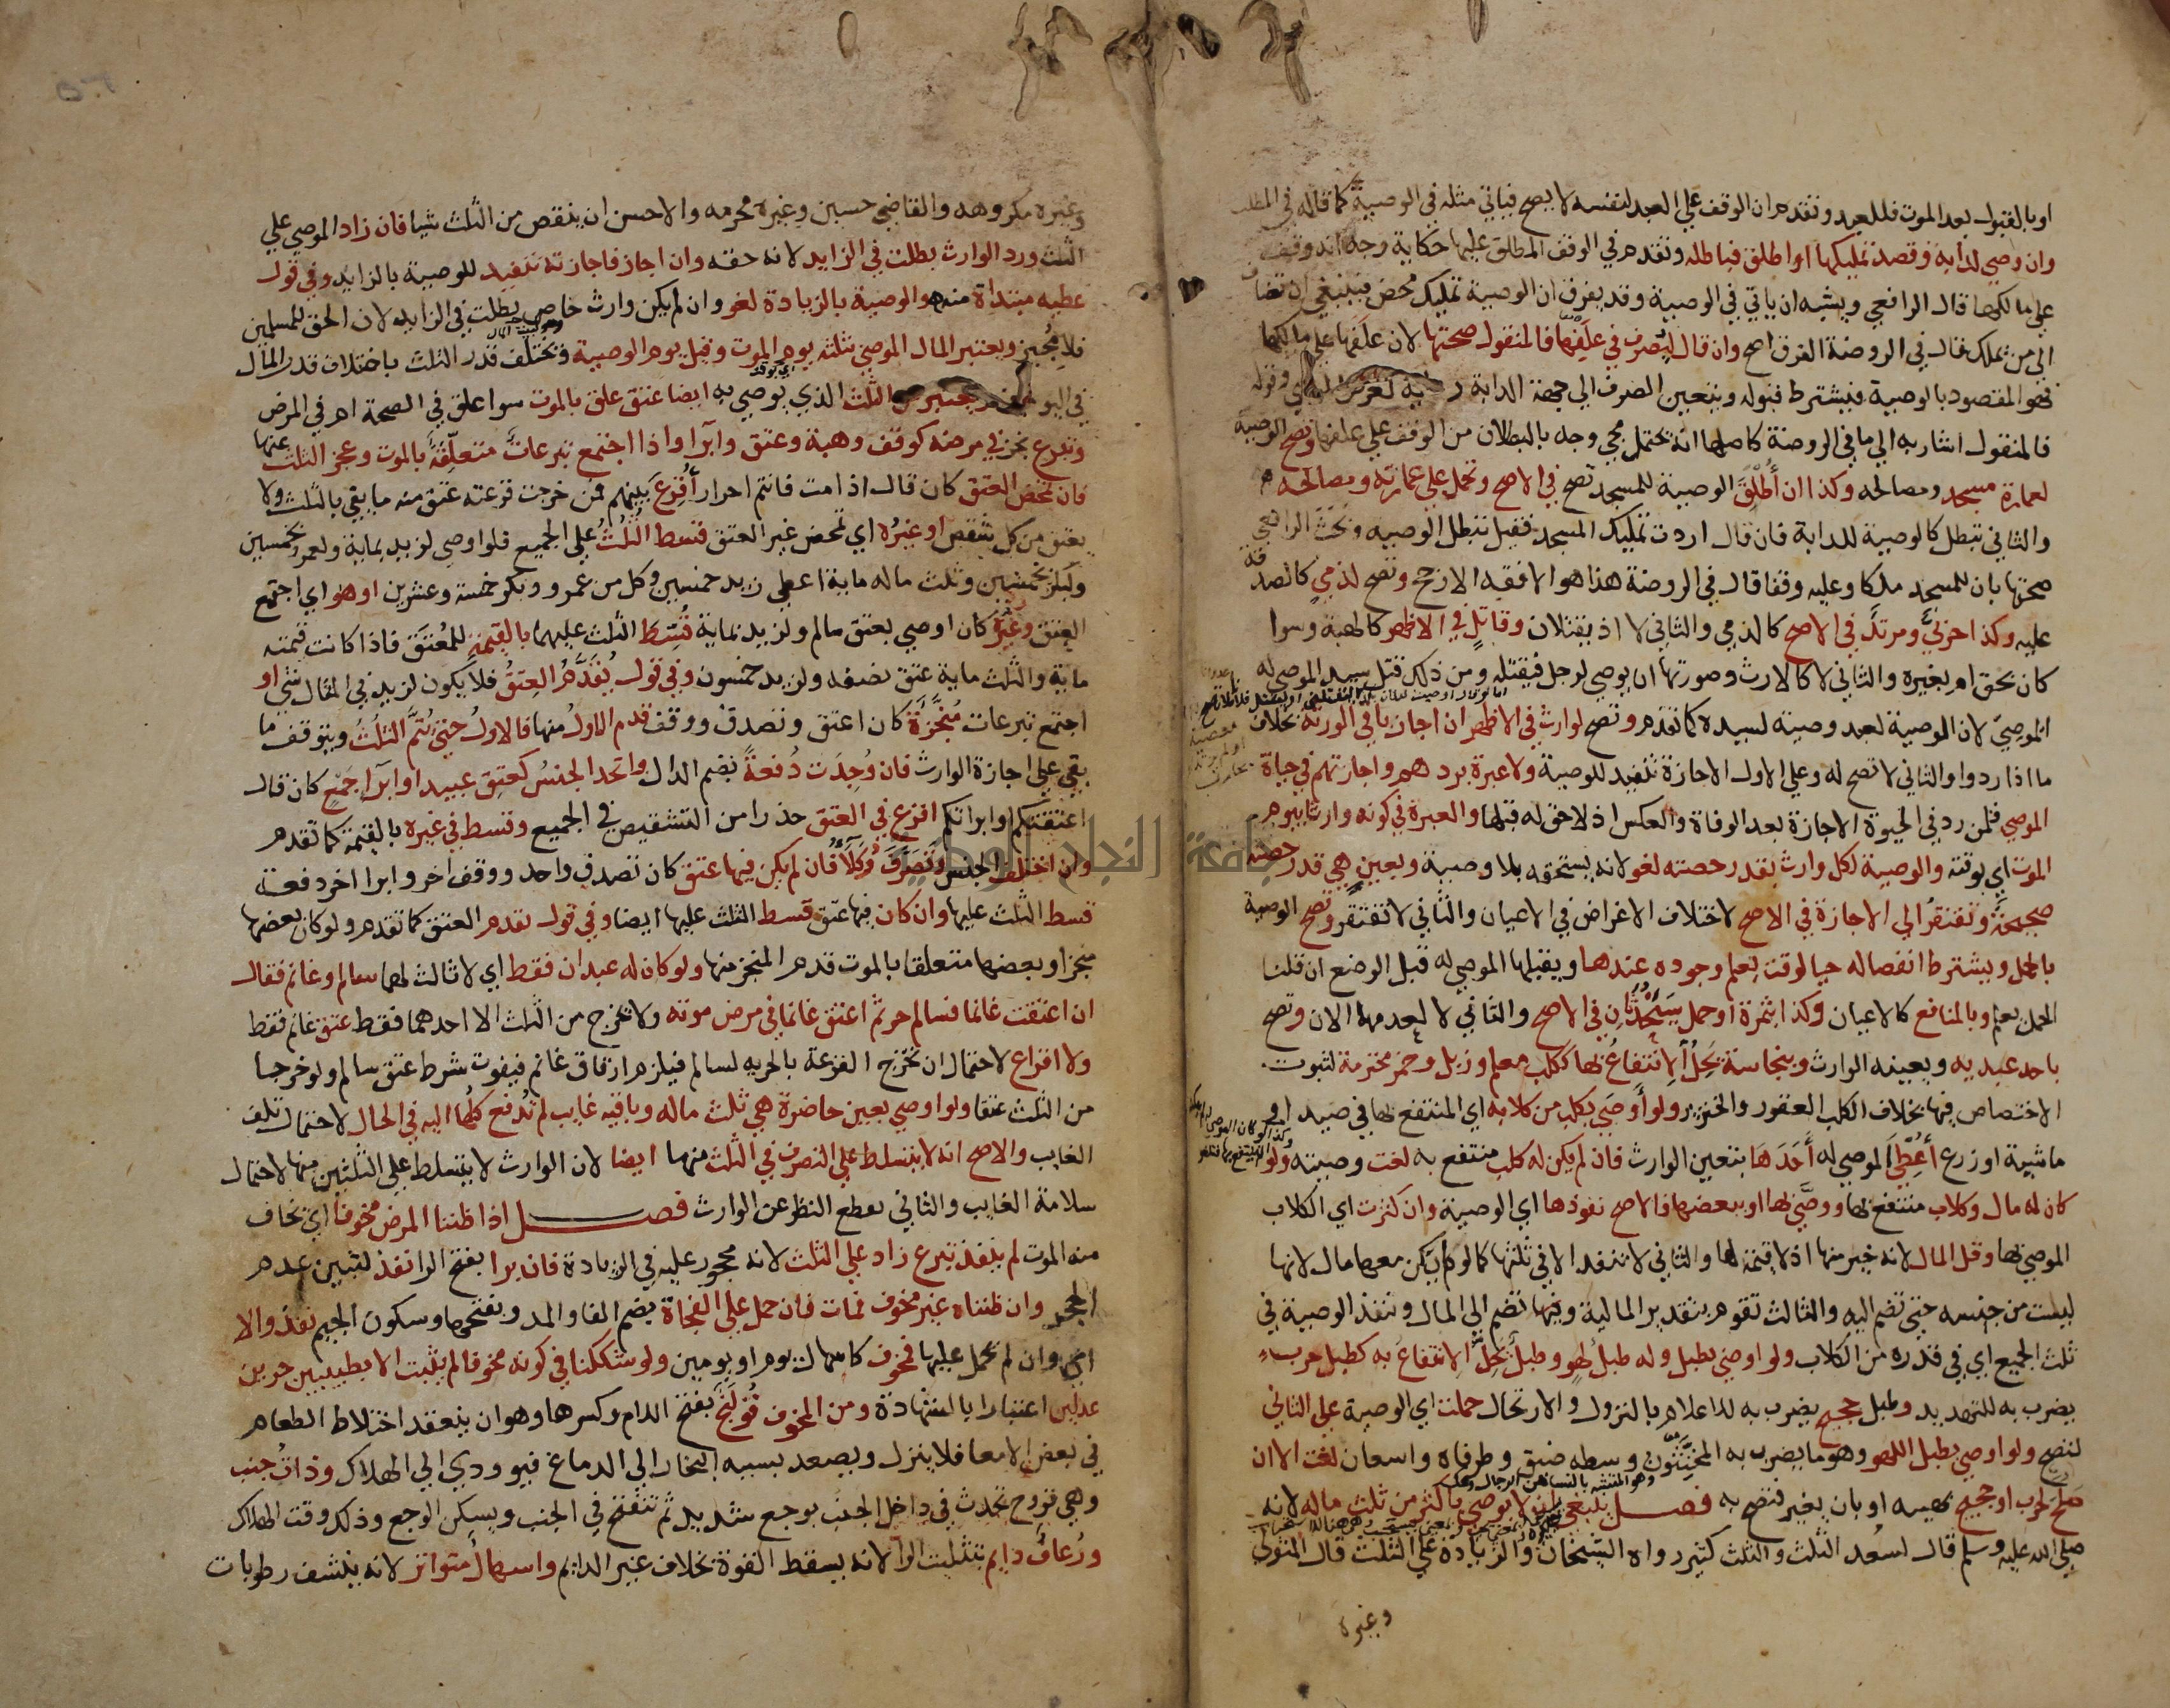 او بالقبول بعد الموت فللعبد وتقدم ان الوقف علي العبد لنفسه لا يصح فياتي مثله في الوصية كما قاله في المطلب
وان وصي لدابة وقصد تمليكها او اطلق فباطله وتقدم في الوقف المطلق عليها حكاية وجه انه وقف
علي مالكها قال الرافعي ويشبه ان ياتي في الوصية وقد يفرق ان الوصية تمليك محض فينبغي ان تضاف
الي من يملك قال في الروضة الفرق اصح وان قال ليصرف في علفها فالمنقول صحتها لان علفها علي مالكها
فهو المقصود بالوصية فيشترط قبوله ويتعين الصرف الي جهة الدابة رعاية لغرض الموصي وقوله
فالمنقول اشار به الي ما في الروضة كاصلها انه يحتمل مجي وجه بالبطلان من الوقف علي علفها وتصح الوصية
لعمارة مسجد ومصالحه وكذا ان أطلق الوصية للمسجد تصح في الاصح وتحمل علي عمارته ومصالحه
والثاني تبطل كالوصية للدابة فان قال اردت تمليك المسجد فقيل تبطل الوصيه وبحث الرافعي
صحتها بان للمسجد ملكا وعليه وقفا قال في الروضة هذا هو الافقه الارجح وتصح لذمي كالصدقة
عليه وكذا حربيٌّ ومرتدٌّ في الاصح كالذمي والثاني لا اذ يقتلان وقاتلٍ في الاظهر كالهبة وسوا
كان بحق ام بغيره والثاني لا كالارث وصورتها ان يوصي لرجل فيقتله ومن ذلك قتل سيد الموصي له
الموصيَ لان الوصية لعبد وصية لسيده كما تقدم وتصح لوارث في الاظهر ان اجاز باقي الورثة بخلاف
ما اذا ردوا والثاني لا تصح له وعلي الاول الاجازة تنفيذ للوصية ولا عبرة بردهم واجازتهم في حياة
الموصي فلمن رد في الحيوة الاجازة بعد الوفاة والعكس اذ لا حق له قبلها والعبرة في كونه وارثا بيوم
الموت اي بوقته والوصية لكل وارث بقدر حصته لغو لانه يستحقه بلا وصية وبعين هي قدر حصته
صحيحةٌ وتفتقر الي الاجازة في الاصح لاختلاف الاغراض في الاعيان والثاني لا تفتقر وتصح الوصية
بالحمل ويشترط انفصاله حيا لوقت يعلم وجوده عندها ويقبلها الموصي له قبل الوضع ان قلنا
الحمل يعلم وبالمنافع كالاعيان وكذا بثمرة او حمل سيحدثان في الاصح والثاني لا لعدمها الان وتصح
باحد عبديه ويعينه الوارث وبنجاسة يحِلُّ الانتفاعُ بها ككلب معلم وزبل وخمر محترمة لثبوت
الاختصاص فيها بخلاف الكلب العقور والخنزير ولو أوصي بكلب من كلابه اي المنتفع بها في صيد او
ماشية او زرع أُعطي الموصي له أحدَها بتعين الوارث فان لم يكن له كلب منتفع به لغت وصيته ولو
كان له مال وكلاب منتفع بها ووصّي بها او ببعضها فالاصح نفوذها اي الوصية وان كثرت اي الكلاب
الموصي بها وقل المال لانه خير منها اذ لا قيمة لها والثاني لا تنفذ الا في ثلثها كما لو لم يكن معها مال لانها
ليست من جنسه حتي تضم اليه والثالث تقوم بتقدير المالية وقيمتها تضم الي المال وتنفذ الوصية في
ثلث الجميع اي في قدره من الكلاب ولو اوصي بطبل وله طبلُ لهوٍ وطبلٌ يحِلُّ الانتفاعُ به كطبل حرب
يضرب به للتهديد وطبل حجيج يضرب به للاعلام بالنزول والارتحال حملت اي الوصية علي الثاني
لتصح ولو اوصي بطبل اللهو وهو ما يضرب به المخنثون وسطه ضيق وطرفاه واسعان لغت الا ان
وهو المتشبه بالنسا من الرجال وعكسه
صلح لحرب او حجيج بهييه او بان يغير فتصح به فصل ينبغي ان لا يوصي باكثر من ثلث ماله لانه
صلي الله عليه وسلم قال لسعد الثلث والثلث كثير رواه الشيخان والزيادة علي الثلث قال المتولي
وغيره
وغيره مكروهه والقاضي حسين وغيره محرمه والاحسن ان ينقص من الثلث شيا فان زاد الموصي علي
الثلث ورد الوارث بطلت في الزايد لانه حقه وان اجاز فاجازته تنفيذ للوصية بالزايد وفي قول
عطيه مبتداة منه والوصية بالزيادة لغو وان لم يكن وارث خاص بطلت في الزايد لان الحق للمسلمين
فلا مُجيز ويعتبر المال الموصي بثلثه يوم الموت وقيل يوم الوصية ويختلف قدر الثلث باختلاف قدر المال
في اليومين ويعتبر من الثلث الذي يوصي به ايضا عتق علق بالموت سوا علق في الصحة ام في المرض
وتبرع نجز في مرضه كوقف وهبة وعتق وابرا واذا اجتمع تبرعاتٌ متعلِّقةٌ بالموت وعجز الثلث عنها
فان تمحض العتق كان قال اذا مت فانتم احرار أُقرِع بينهم فمن خرجت قرعته عتق منه ما يفي بالثلث ولا
يعتق من كل شقص او غيرُه اي تمحض غير العتق قسط الثلُثُ علي الجميع فلو اوصي لزيد بماية ولعمرو بخمسين
ولبكر بخمسين وثلث ماله ماية اعطي زيد خمسين وكل من عمرو وبكر خمسة وعشرين او هو اي اجتمع
العتق وغيرُه كان اوصي بعتق سالم ولزيد بماية قُسِّط الثلث عليهما بالقيمة للمُعتَق فاذا كانت قيمته
ماية والثلث ماية عتق نصفه ولزيد خمسون وفي قول يُقدَّمُ العِتقُ فلا يكون لزيد في المثال شي او
اجتمع تبرعات مُنجَّزةٌ كان اعتق وتصدق ووقف قدم الاولُ منها فالاولُ حتي يُتمَّ الثلُثُ ويتوقف ما
بقي علي اجازة الوارث فان وُجِدَت دُفعةً بضم الدال واتحد الجنسُ كعِتِق عبيد او ابرا جَمعٍ كان قال
اعتقتكم او ابراتكم اقرع في العتق حذرا من التشقيص في الجميع وقسط في غيره بالقيمة كما تقدم
وان اختلف الجنس وتصرَّف وُكلاءُ فان لم يكن فيها عتق كان تصدق واحد ووقف اخر وابرا اخر دفعة
قسط الثلث عليها وان كان فيها عتق قسط الثلث عليها ايضا وفي قول يقدم العتق كما تقدم ولو كان بعضها
منجزا وبعضها متعلقا بالموت قدم المنجز منها ولو كان له عبدان فقط اي لا ثالث لهما سالم وغانم فقال
ان اعتقت غانما فسالم حر ثم اعتق غانما في مرض موته ولا يخرج من الثلث الا احدهما فقط عتق غانم فقط
ولا اقراع لاحتمال ان تخرج القرعة بالحريه لسالم فيلزم ارقاق غانم فيفوت شرط عتق سالم ولو خرجا
من الثلث عتقا ولو اوصي بعين حاضرة هي ثلث ماله وباقيه غايب لم تُدفع كلُّها اليه في الحال لاحتمال تلف
الغايب والاصح انه لا يتسلط علي التصرف في الثلث منها ايضا لان الوارث لا يتسلط علي الثلثين منها لاحتمال
سلامة الغايب والثاني بقطع النظر عن الوارث فصل اذا ظننا المرض مخوفا اي يخاف
منه الموت لم ينفذ تبرع زاد علي الثلث لانه محجور عليه في الزيادة فان برا بفتح الرا نفذ لتبين عدم
الحجر وان ظنناه غير مخوف فمات فان حمل علي الفجاة بضم الفا والمد وبفتحها وسكون الجيم نفذ والا
اي وان لم يحمل عليها فمخوف كاسهال يوم او يومين ولو شككنا في كونه مخوفا لم يثبت الا بطبيبين حرين
عدلين اعتبارا بالشهادة ومن المخوف قُولَنج بفتح اللام وكسرها وهو ان ينعقد اختلاط الطعام
في بعض الامعا فلا ينزل ويصعد بسببه البخار الي الدماغ فيوودي الي الهلاك وذاتُ جنب
وهي قروح تحدث في داخل الجنب بوجع شديد ثم تنفتح في الجنب ويسكن الوجع وذلك وقت الهلاك
ورُعافٌ دايم بتثليث الرا لانه يسقط القوة بخلاف غير الدايم واسهالٌ متواتر لانه ينشف رطوبات
جامعة النجاح الوطنية